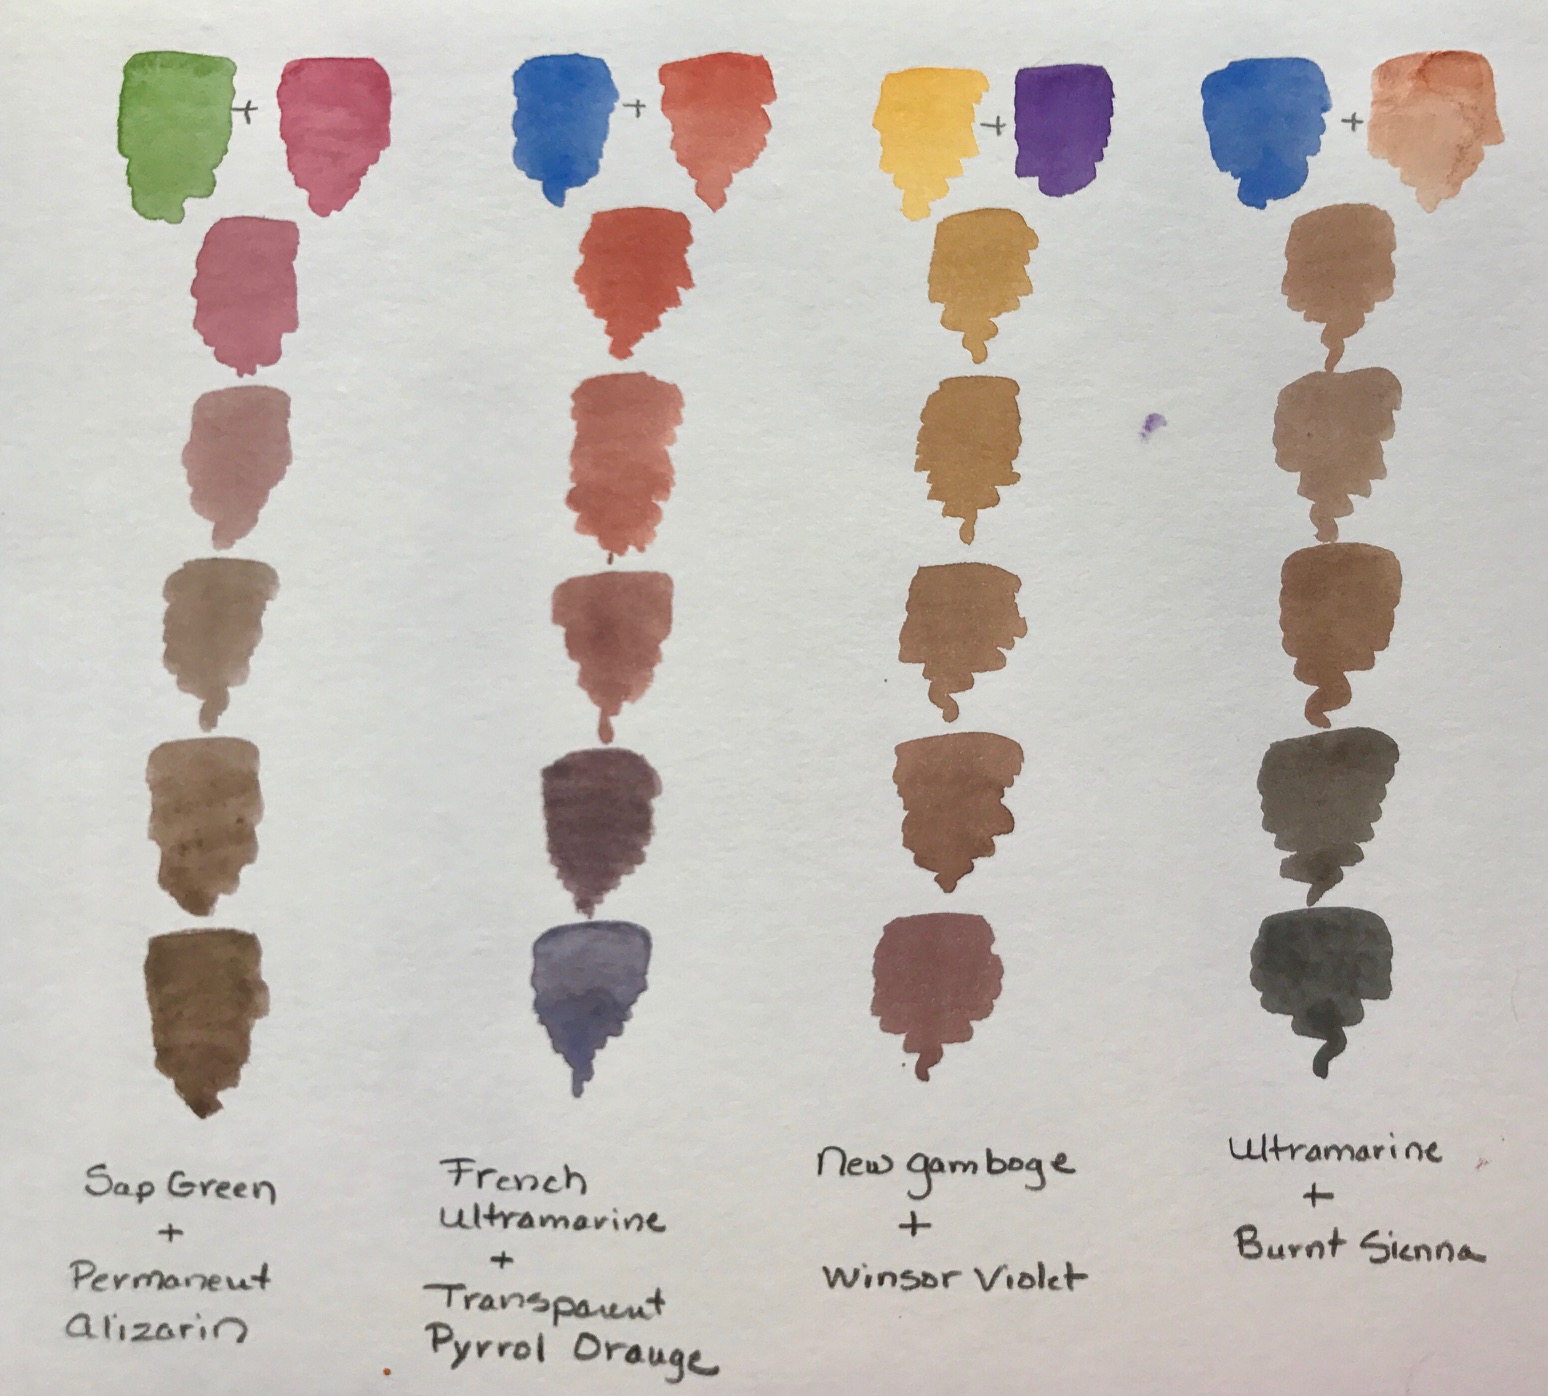 +
+
+
+
Sap Green
+
Permanent
Alizarin
French
Ultramarine
+
Transparent
Pyrrol Orange
New gamboge
+
Winsor Violet
Ultramarine
+
Burnt Sienna